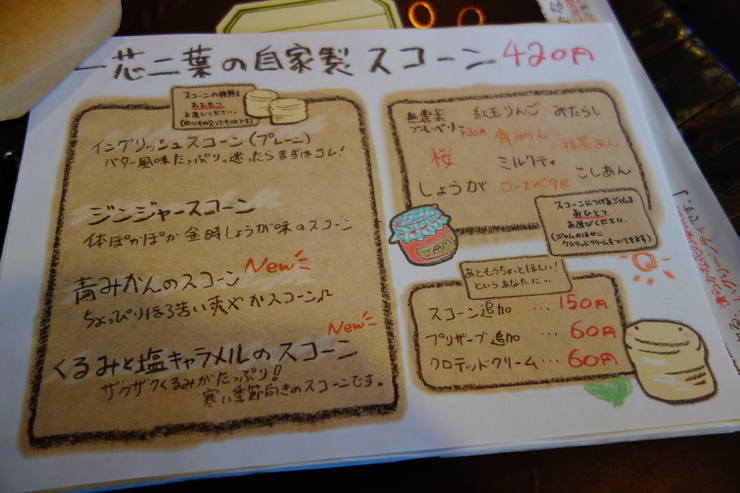 一芯二葉の自家製スコーン 420円
スコーンの種類は
おふたつ
お選びください。
イングリッシュスコーン(プレーン)
バター風味たっぷり。迷ったらまずはコレ!
ジンジャースコーン
体ぽかぽか金時しょうが味のスコーン
青みかんのスコーン New
ちょっぴりほろ苦い爽やかスコーン♪
New
くるみと塩キャラメルのスコーン
ザクザクくるみがたっぷり!
寒い季節向きのスコーンです。
無農薬
ブルーベリー +30円
紅玉りんご みたらし
青みかん 抹茶あん
桜 ミルクティ こしあん
しょうが ローズペタル
スコーンにつけるジャムを
おひとつ
お選びください。
(ジャムのほかに
クロテッドクリームもついてきます)
JAM
あともうちょっとほしい!
というあなたに…
スコーン追加 … 150円
プリザーブ追加 60円
クロテッドクリーム … 60円